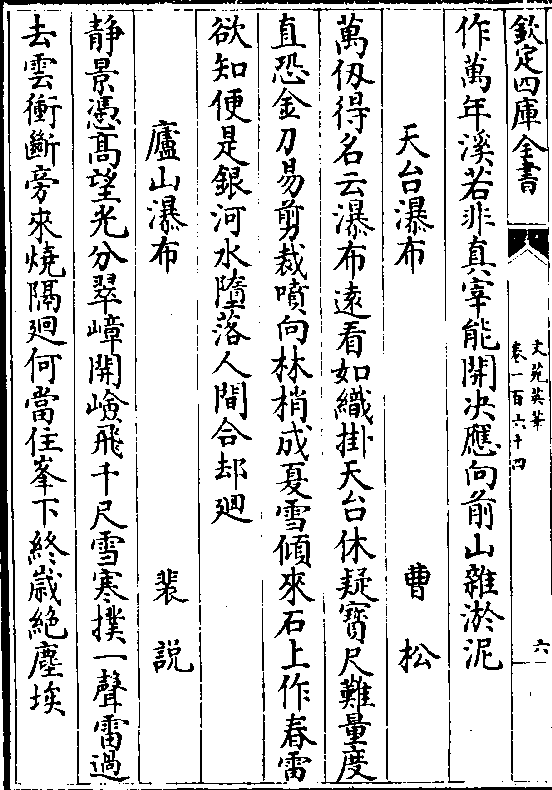 欽定四庫全書
文苑英華
卷一百六十四
六
作萬年溪若非真宰能開決應向前山雜淤泥
天台瀑布 曹松
萬仭得名云瀑布逺看如織掛天台休疑寳尺難量度
直恐金刀易剪裁噴向林梢成夏雪傾來石上作春雷
欲知便是銀河水墮落人間合却廻
廬山瀑布 裴說
静景憑髙望光分翠嶂開嶮飛千尺雪寒撲一聲雷過
去雲衝斷旁來燒隔廻何當住峯下終歲絶塵埃